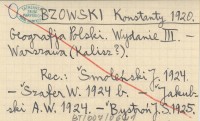 BZOWSKI Konstanty 1920.
Geografja Polski. Wydanie III. —
Warszawa (Kalisz?).
Rec.: "Smoleński J. 1924.
— "Szafer W. 1924 b. — "Jakub-
ski A.W. 1924. — "Bystroń J. S. 1925.